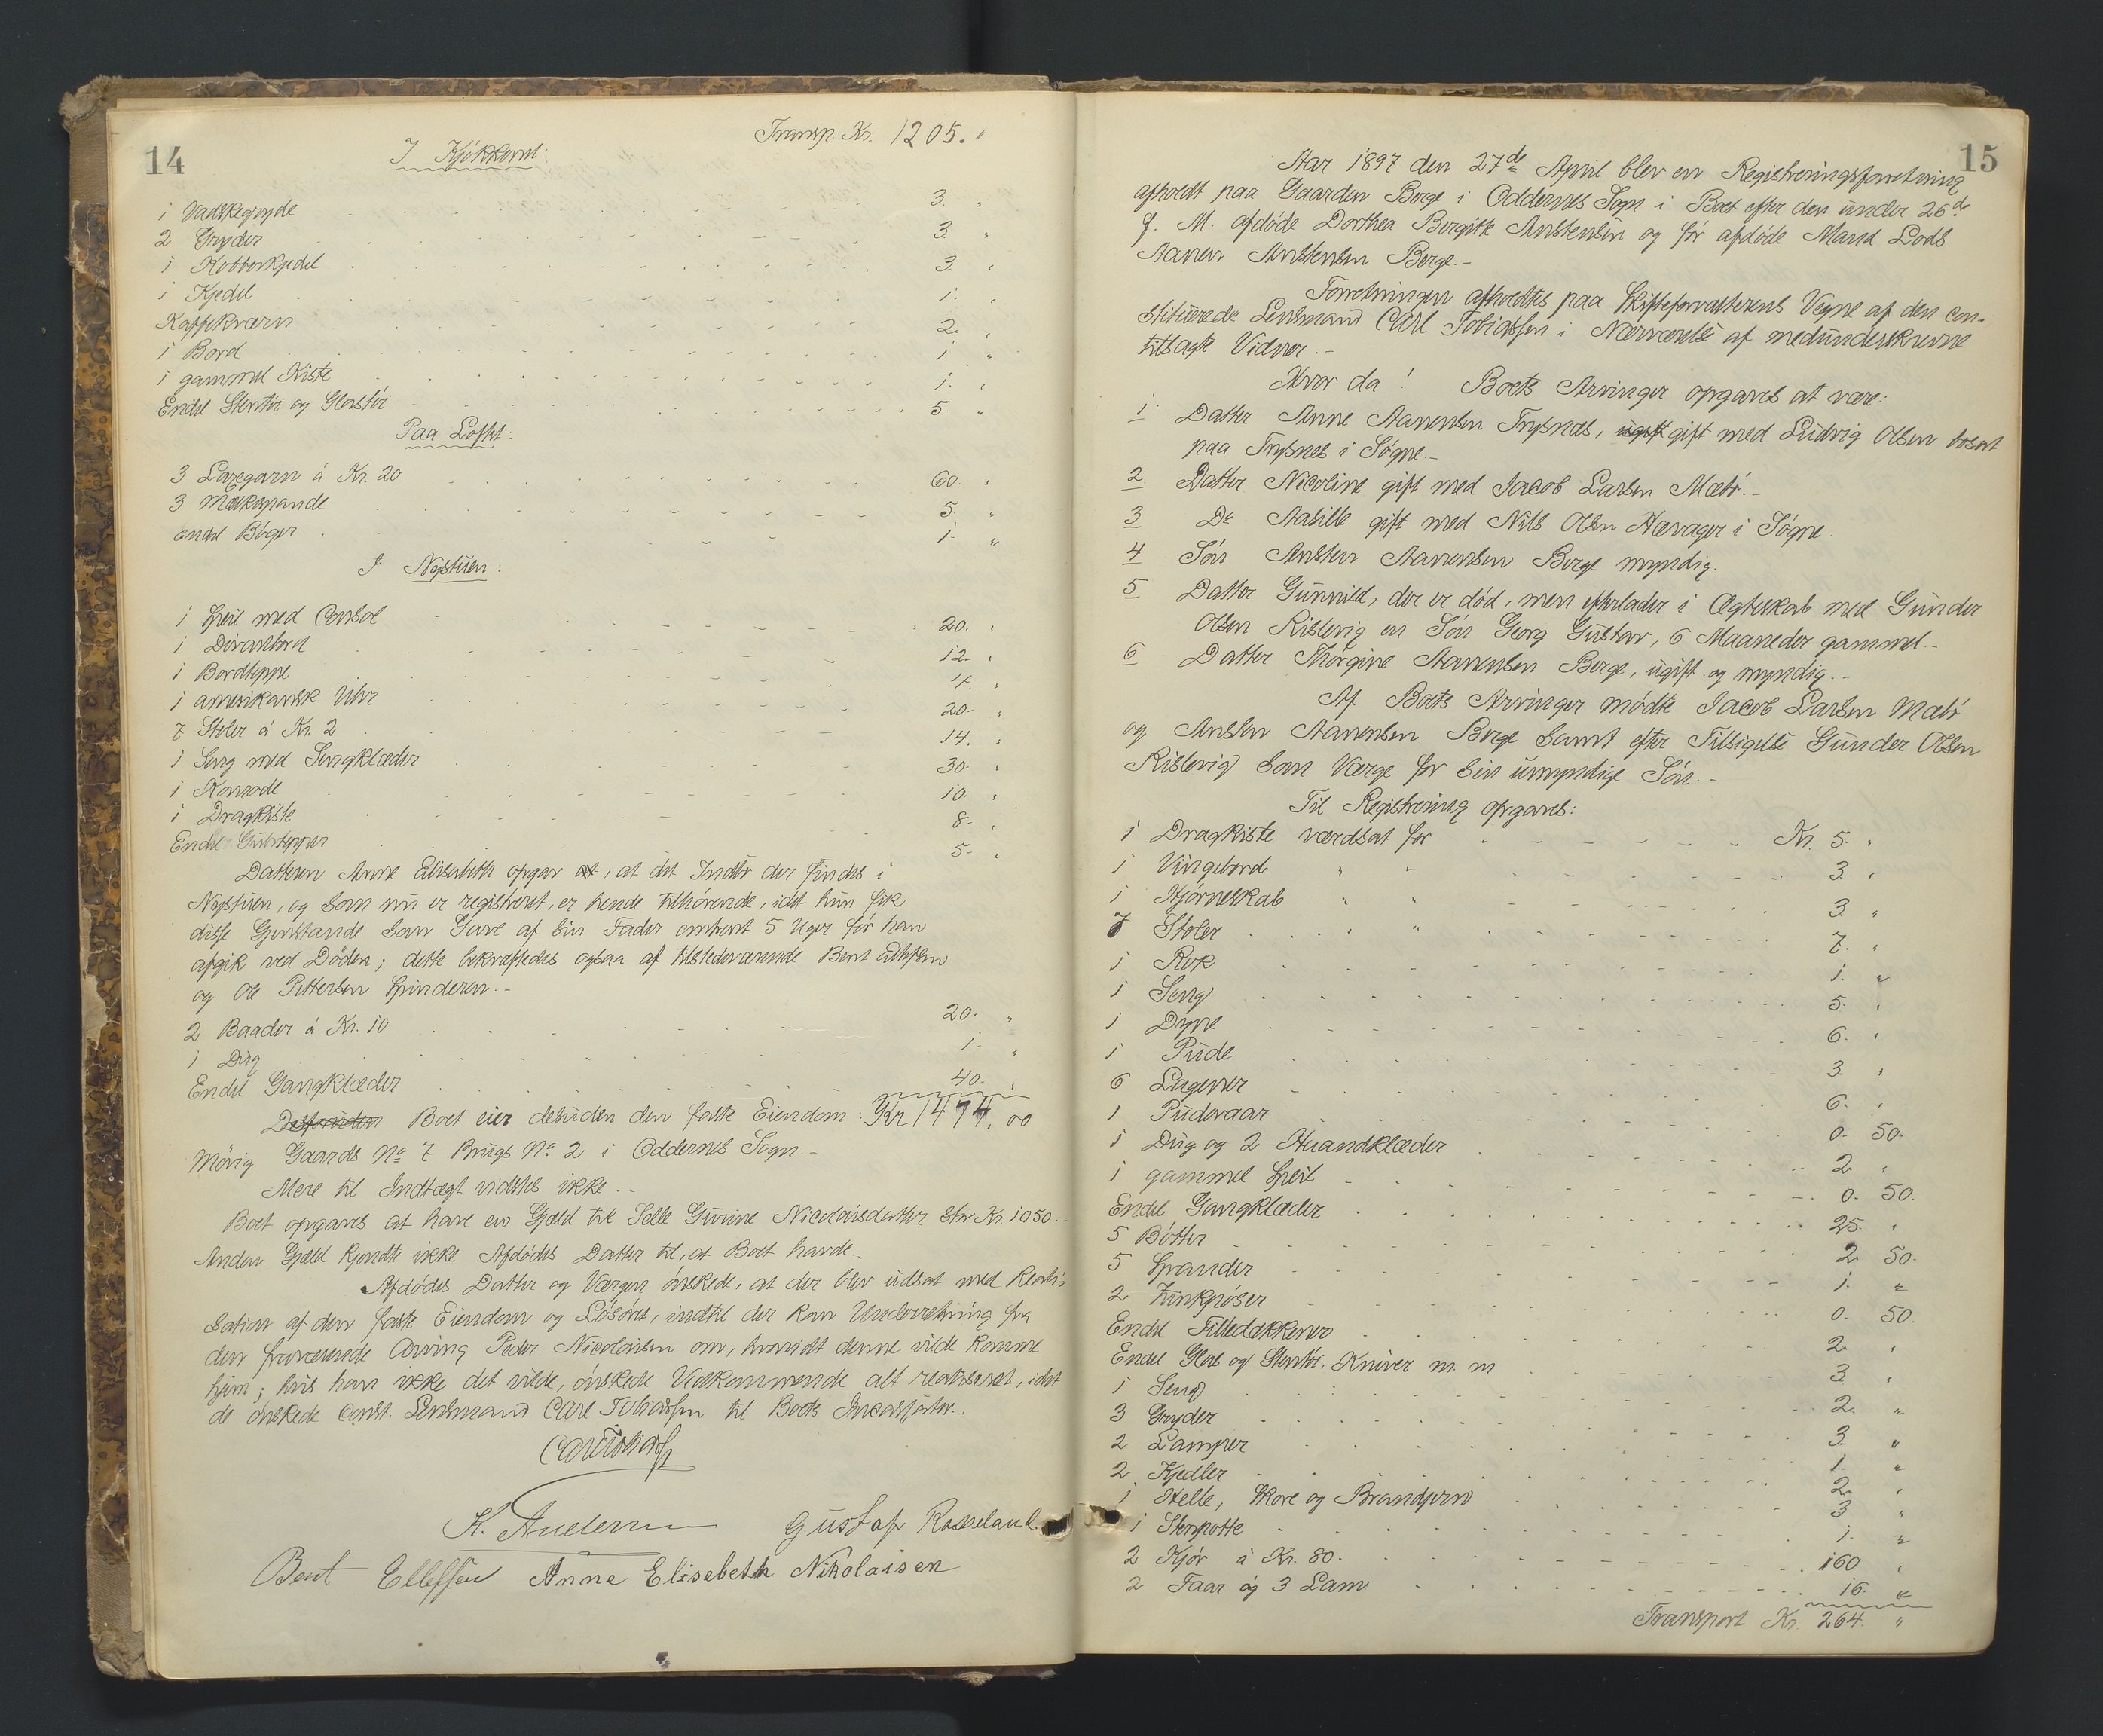 14
Transp. Kr. 1205. "
I Kjøkkenet:
1 Vadskegryde 3. "
2 Gryder 3. "
1 Kobberkjedel 3. "
1 Kjedel 1. "
Kaffekværn 2. "
1 Bord 1 "
1 gammel Kiste 1. "
Endel Stentøi og Glastøi 5. "
Paa Loftet:
3 Laxegarn á Kr. 20 60. "
3 Melkespande 5. "
Endel Bøger 1. "
I Nystuen:
1 Speil med Consol 20. "
1 Divanbord 12. "
1 Bordteppe 4. "
1 amerikansk Uhr 20. "
7 Stoler á Kr. 2 14. "
1 Seng med Sengklæder 30. "
1 Komode 10. "
1 Dragkiste 8. "
Endel Gulvtepper 5. "
Datteren Anne Elisabeth opgav at, at det Indbo der findes i
Nystuen, og som nu er registreret, er hende tilhørende, idet hun fik
disse Gjenstande som Gave af sin Fader omtrent 5 Uger før han
afgik ved Døden; dette bekræftedes ogsaa af tilstedeværende Bent Ellefsen
og Ole Pettersen Spinderen.-
2 Baader á Kr. 10 20. "
1 Dug 1. "
Endel Gangklæder 40. "
Desforuden Boet eier desuden den faste Eiendom: Kr 1474.00
Møvig Gaards No 7 Brugs No 2 i Oddernes Sogn.-
Mere til Indtægt vidstes ikke.-
Boet opgaves at have en Gjæld til Selle Gurine Nicolaisdatter stor Kr. 1050.-
Anden Gjæld kjendte ikke Afdødes Datter til, at Boet havde.-
Afdødes Datter og Værgen ønskede, at der blev udsat med Reali-
sation af den faste Eiendom og Løsøret, indtil der kom Underretning fra
den fraværende Arving Peder Nicolaisen om, hvorvidt denne vilde komme
hjem; hvis han ikke det vilde, ønskede Vedkommende alt realiseret, idet
de ønskede const. Lensmand Carl Tobiassen til Boets Incassator.-
Carl Tobiass
K. Andersen Gustaf Rosseland.
Bent Ellefsen Anne Elisebeth Nikolaisen
15
Aar 1897 den 27de April blev en Registreringsforretning
afholdt paa Gaarden Berge i Oddernes Sogn i Boet efter den under 26de
f. M. afdøde Dorthea Bergitte Anstensen og før afdøde Mand Lods
Aanen Anstensen Berge.-
Forretningen afholdtes paa Skifteforvalterens Vegne af den con-
stituerede Lensmand Carl Tobiassen i Nærværelse af medunderskrevne
tilsagte Vidner.-
Hvor da! Boets Arvinger opgaves at være:
1 Datter Anne Aanensen Trysnes, ugift gift med Ludvig Olsen bosat
paa Trysnes i Søgne.-
2. Datter Nicoline gift med Jacob Larsen Mæbø.-
3 Do Aasille gift med Nils Olsen Hævager i Søgne.
4 Søn Ansten Aanensen Berge myndig.
5 Datter Gunnild, der er død, men efterlader i Ægteskab med Gunder
Olsen Kislevig en Søn Georg Gustav, 6 Maaneder gammel.-
6 Datter Thorgine Aanensen Berge, ugift og myndig.-
Af Boets Arvinger mødte Jacob Larsen Mæbø
og Ansten Aanensen Berge samt efter Tilsigelse Gunder Olsen
Kislevig som Værge for sin umyndige Søn.-
Til Registrering opgaves:
1 Dragkiste værdsat for Kr. 5. "
1 Vingebord " " 3. "
1 Hjørneskab " " 3. "
7 Stoler " " 7. "
1 Rok 1. "
1 Seng 5. "
1 Dyne 6. "
1 Pude 3. "
6 Lagener 6. "
1 Pudevaar 0. 50.
1 Dug og 2 Haandklæder 2. "
1 gammel Speil 0. 50.
Endel Gangklæder 25. "
5 Bøtter 2. 50.
5 Spander 1. "
2 Zinkpøser 0. 50.
Endel Filledækkener 2. "
Endel Glas og Stentøi. Kniver m. m 3. "
1 Seng 2. "
3 Gryder 3. "
2 Lamper 1. "
2 Kjedler 2. "
1 Helle, Skore og Brandjern 3 "
1 Stenpotte 1. "
2 Kjør á Kr. 80. 160 "
2 Faar og 3 Lam 16. "
Transport Kr. 264. "